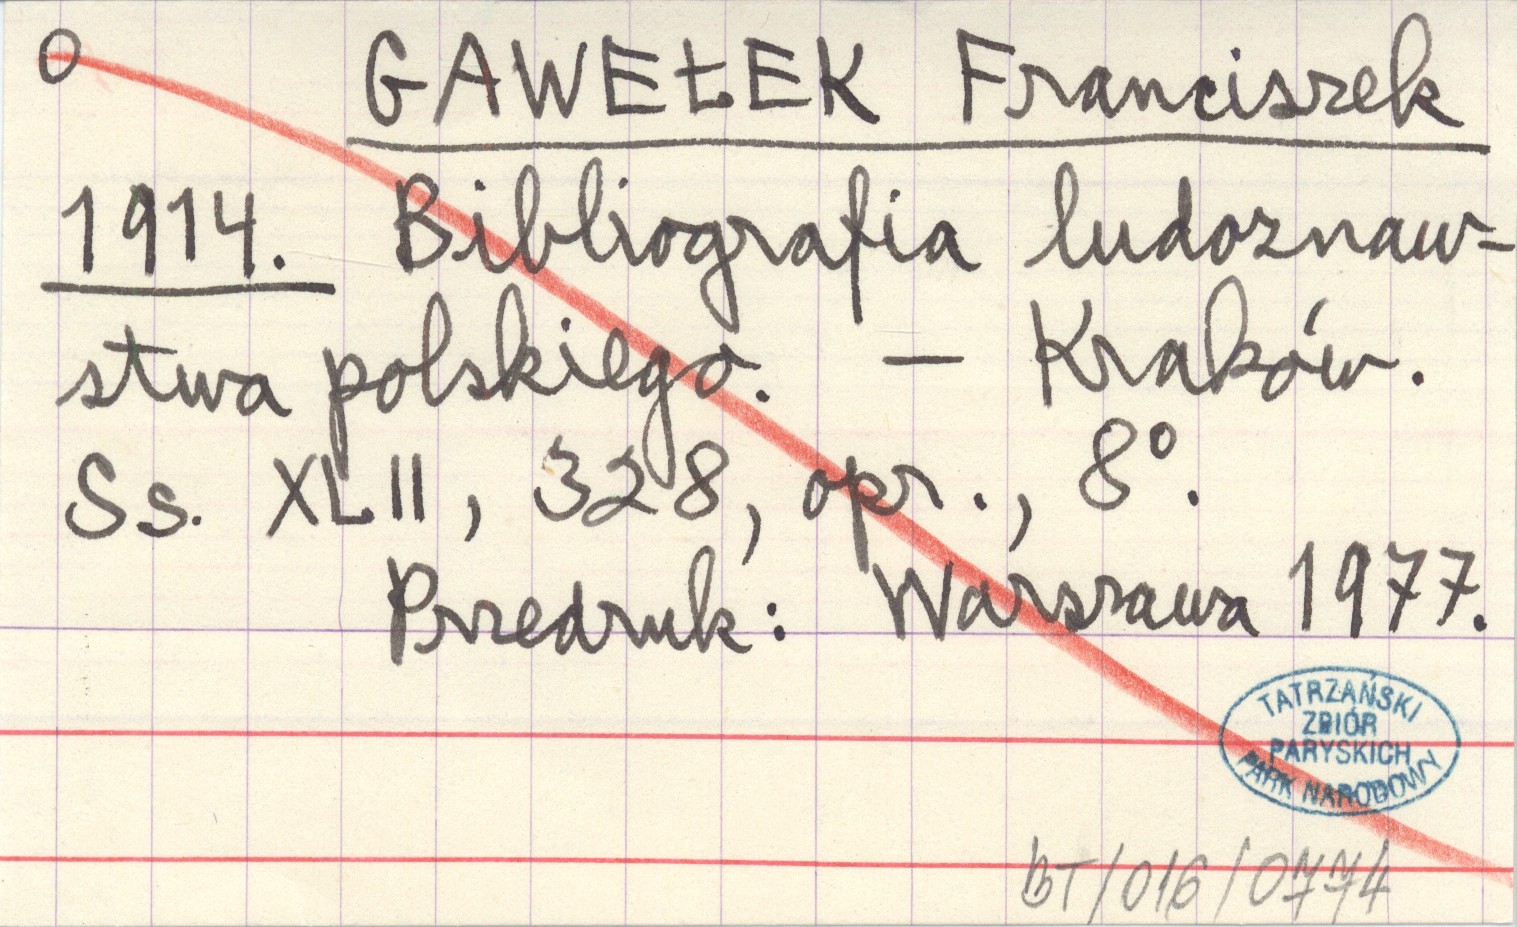 O GAWEŁEK Franciszek
1914. Bibliografia ludoznaw=
stwa polskiego. — Kraków.
Ss. XLII, 328, opr., 8°.
Przedruk: Warszawa 1977.
TATRZAŃSKI
ZBIÓR
PARYSKICH
PARK NARODOWY
BT/016/0774